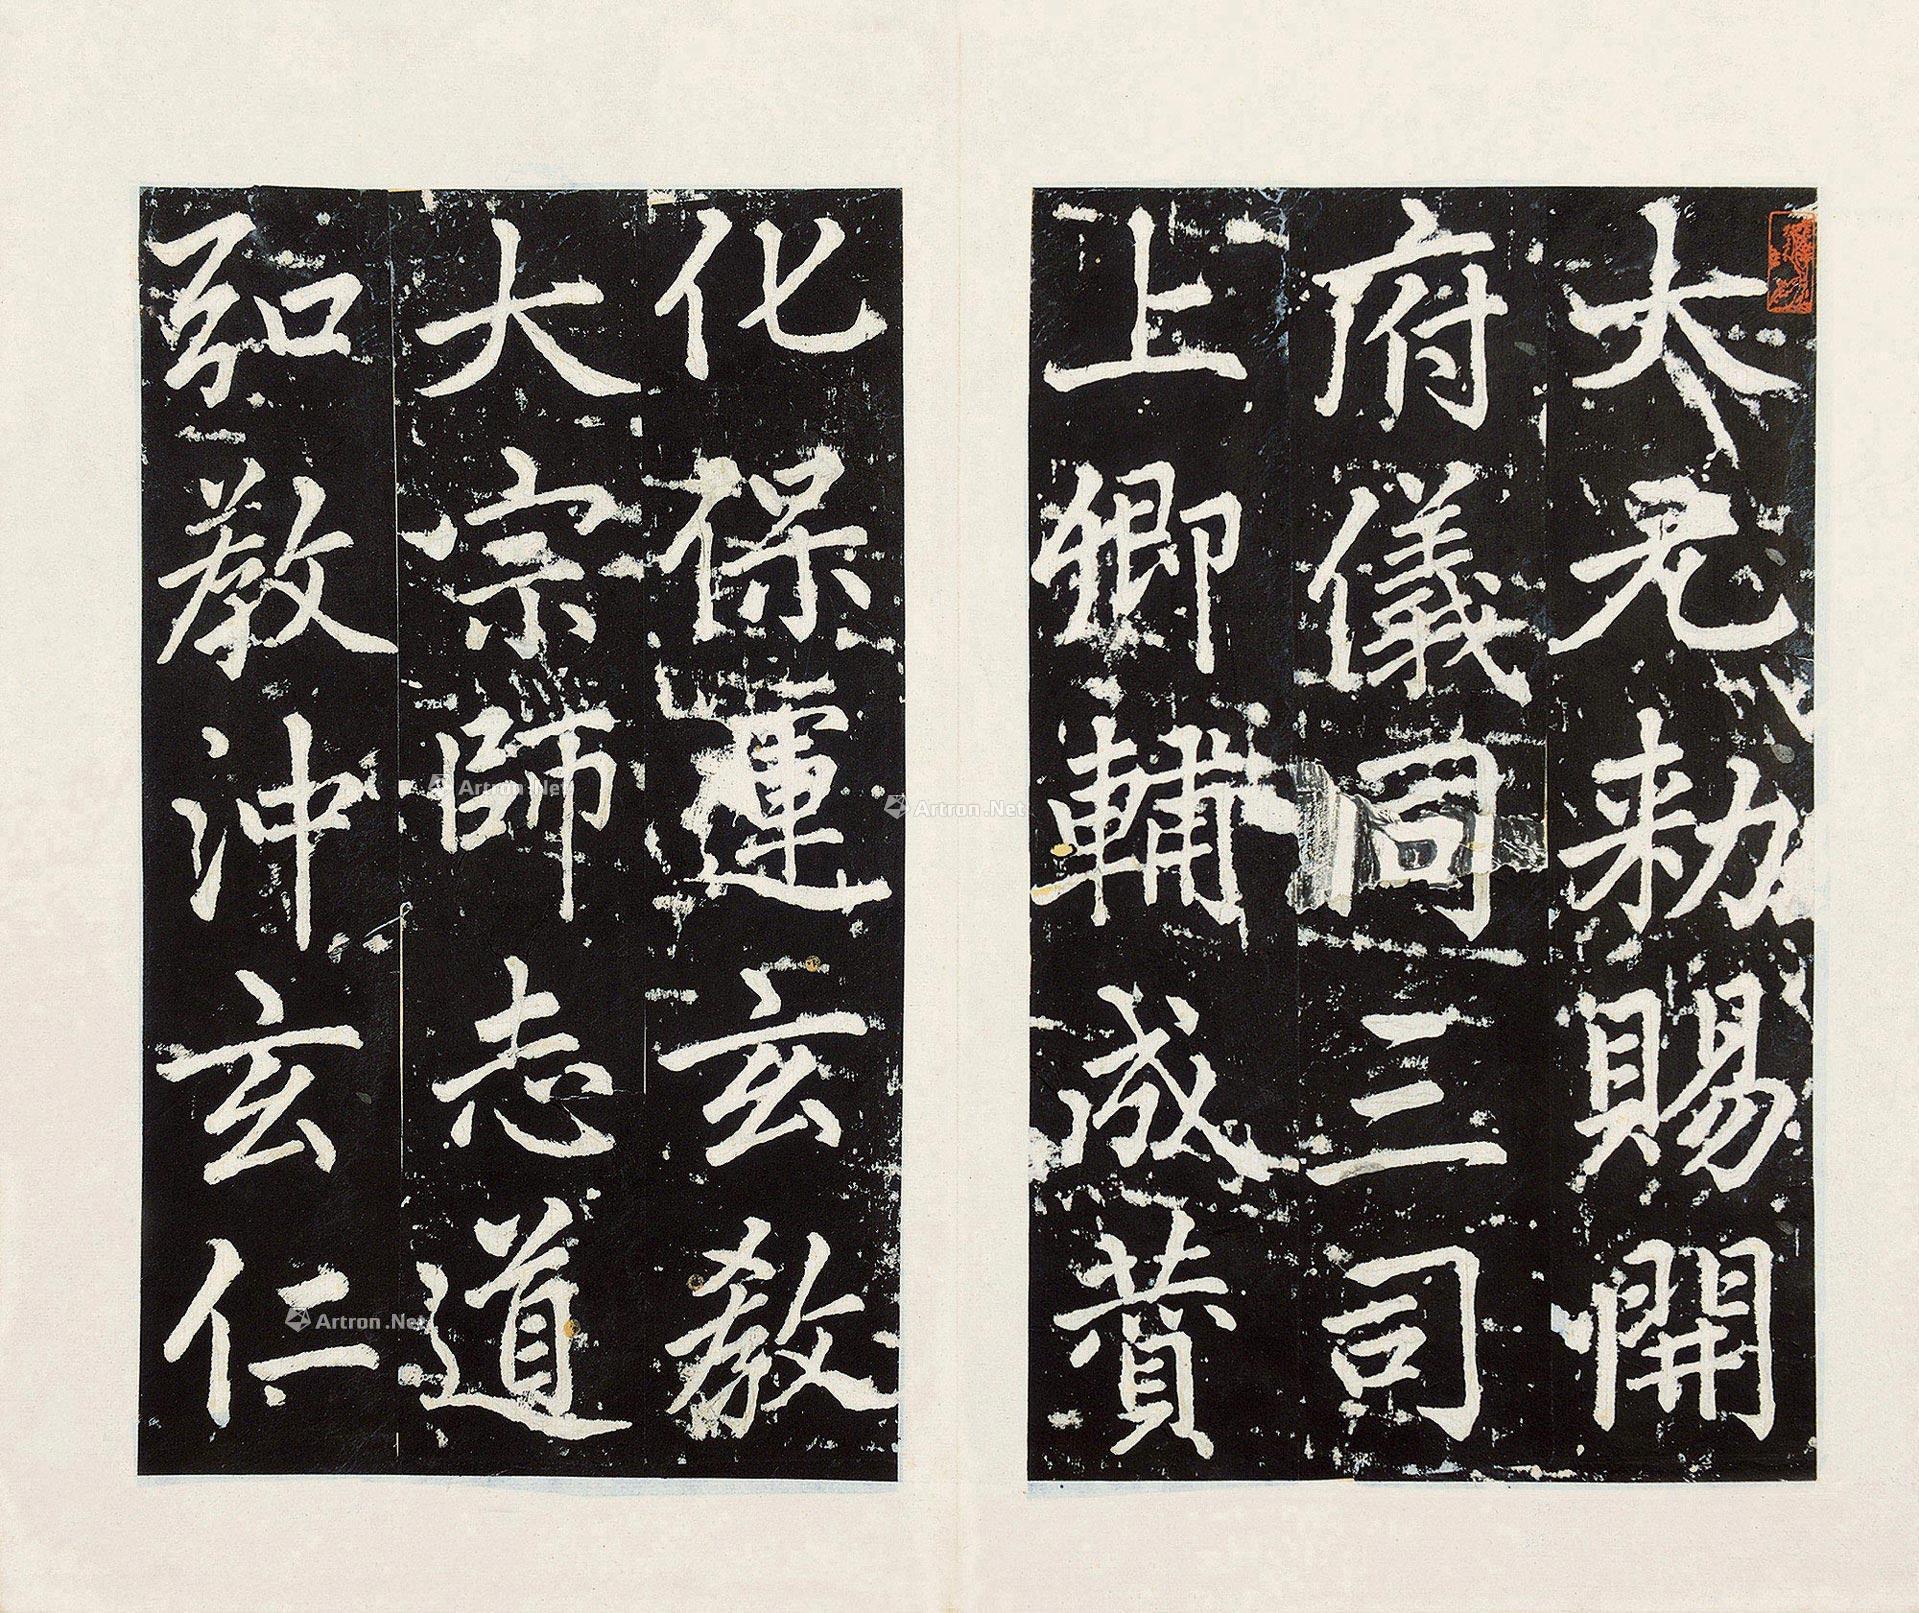 大元勑賜開
府儀同三司
上卿輔成賛
化保運玄教
大宗師志道
弘教冲玄仁
Artron.Net
Artron.Net
Artron.Net